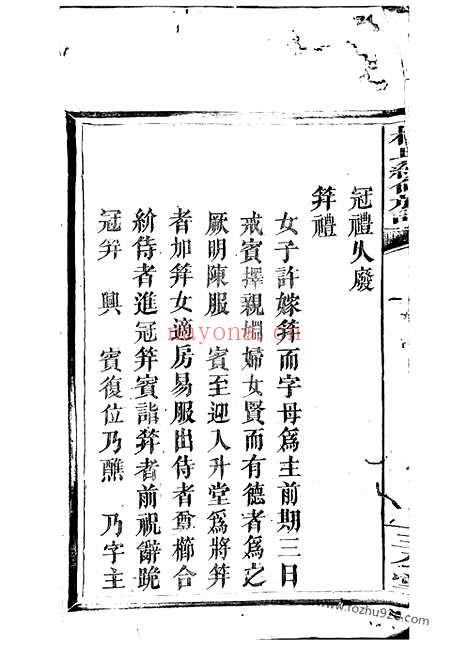 冠禮久廢
笄禮
女子許嫁笄而字母為主前期三日
戒賓擇親婣婦女賢而有德者為之
厥明陳服　賓至迎入升堂為將笄
者加笄女適房易服出侍者奠櫛合
紒侍者進冠笄賓詣笄者前祝辭跪
冠笄　興　賓復位乃醮　乃字主
nayona.cn
www.fozhu920.com